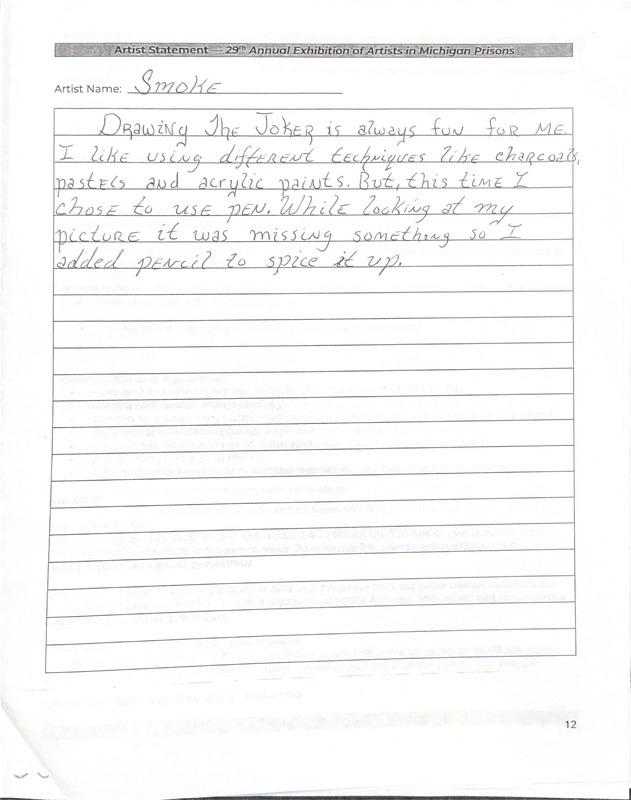 Artist Statement — 29th Annual Exhibition of Artists in Michigan Prisons
Artist Name: Smoke
Drawing The Joker is always fun for me.
I like using different techniques like charcoals,
pastels and acrylic paints. But, this time I
chose to use pen. While looking at my
picture it was missing something so I
added pencil to spice it up.
12